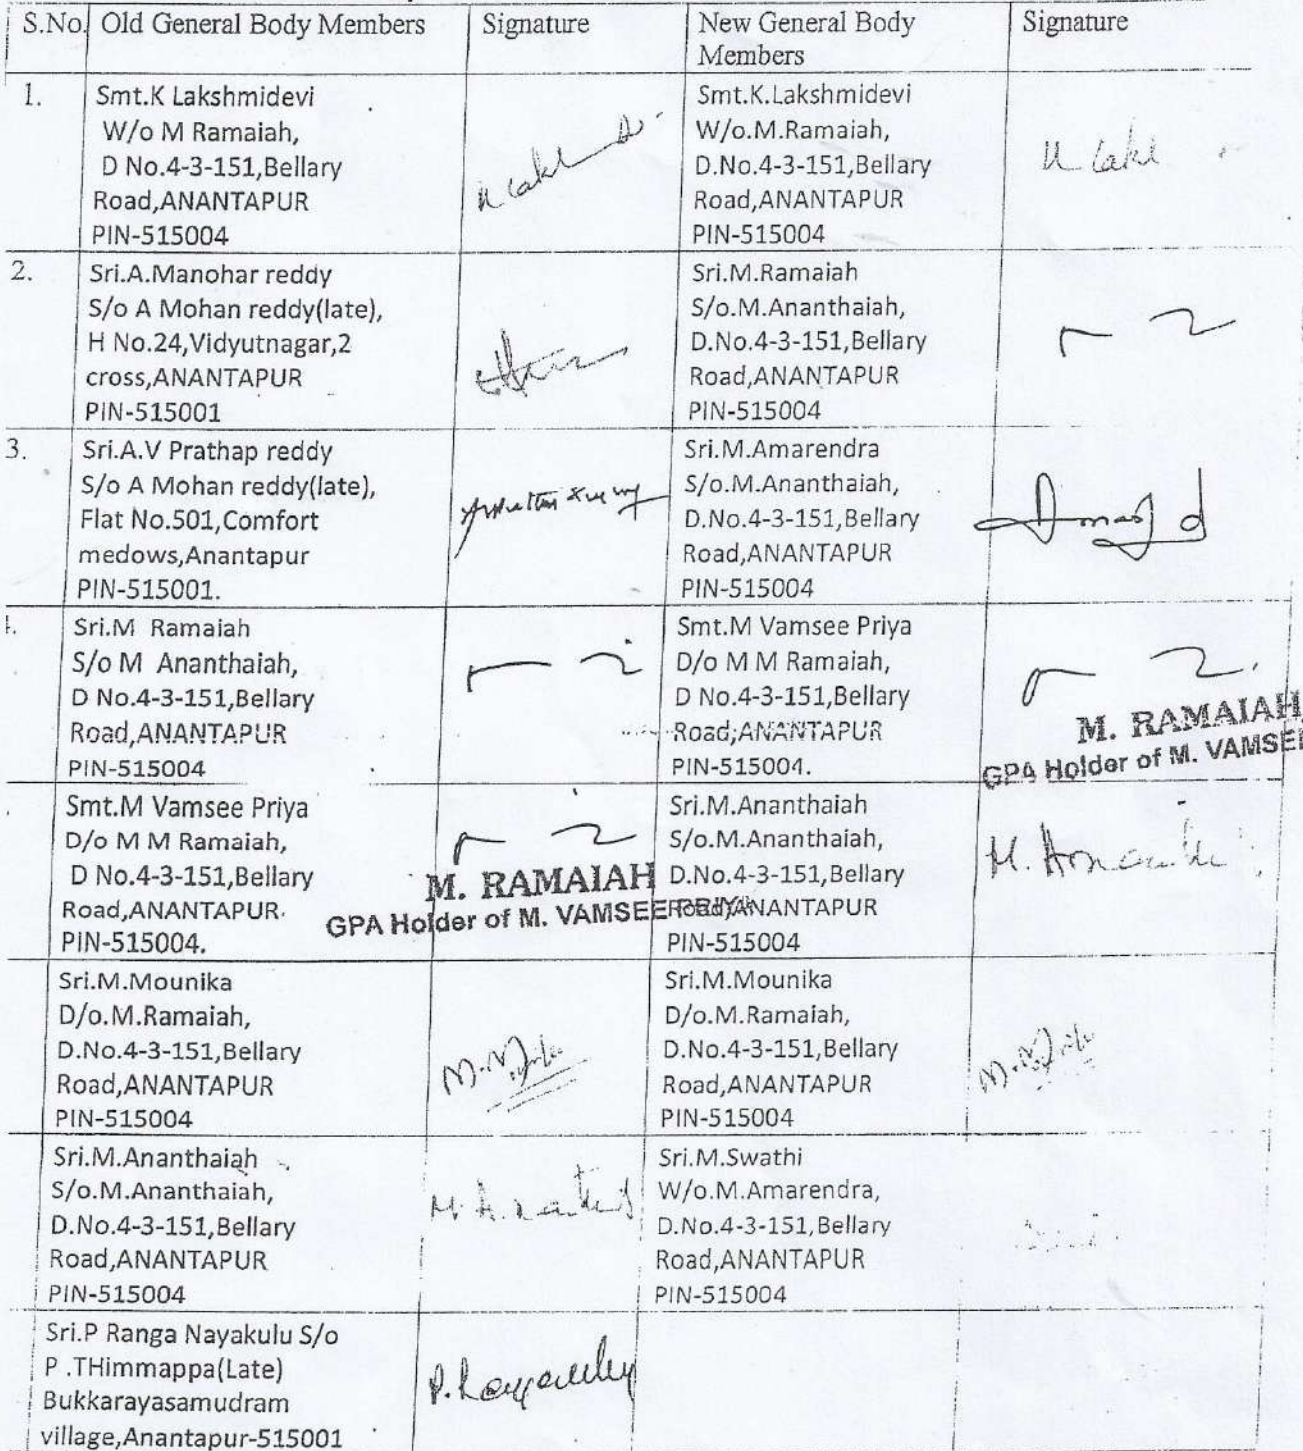 S.No. Old General Body Members Signature New General Body Members Signature
1.
Smt.K Lakshmidevi
W/o M Ramaiah,
D No.4-3-151,Bellary
Road,ANANTAPUR
PIN-515004
Smt.K.Lakshmidevi
W/o.M.Ramaiah,
D.No.4-3-151,Bellary
Road,ANANTAPUR
PIN-515004
2.
Sri.A.Manohar reddy
S/o A Mohan reddy(late),
H No.24,Vidyutnagar,2
cross,ANANTAPUR
PIN-515001
Sri.M.Ramaiah
S/o.M.Ananthaiah,
D.No.4-3-151,Bellary
Road,ANANTAPUR
PIN-515004
3.
Sri.A.V Prathap reddy
S/o A Mohan reddy(late),
Flat No.501,Comfort
medows,Anantapur
PIN-515001.
Sri.M.Amarendra
S/o.M.Ananthaiah,
D.No.4-3-151,Bellary
Road,ANANTAPUR
PIN-515004
Sri.M Ramaiah
S/o M Ananthaiah,
D No.4-3-151,Bellary
Road,ANANTAPUR
PIN-515004
Smt.M Vamsee Priya
D/o M M Ramaiah,
D No.4-3-151,Bellary
Road,ANANTAPUR
PIN-515004.
M. RAMAIAH
GPA Holder of M. VAMSEE
Smt.M Vamsee Priya
D/o M M Ramaiah,
D No.4-3-151,Bellary
Road,ANANTAPUR.
PIN-515004.
M. RAMAIAH
GPA Holder of M. VAMSEE
Sri.M.Ananthaiah
S/o.M.Ananthaiah,
D.No.4-3-151,Bellary
Road,ANANTAPUR
PIN-515004
Sri.M.Mounika
D/o.M.Ramaiah,
D.No.4-3-151,Bellary
Road,ANANTAPUR
PIN-515004
Sri.M.Mounika
D/o.M.Ramaiah,
D.No.4-3-151,Bellary
Road,ANANTAPUR
PIN-515004
Sri.M.Ananthaiah
S/o.M.Ananthaiah,
D.No.4-3-151,Bellary
Road,ANANTAPUR
PIN-515004
Sri.M.Swathi
W/o.M.Amarendra,
D.No.4-3-151,Bellary
Road,ANANTAPUR
PIN-515004
Sri.P Ranga Nayakulu S/o
P .THimmappa(Late)
Bukkarayasamudram
village,Anantapur-515001